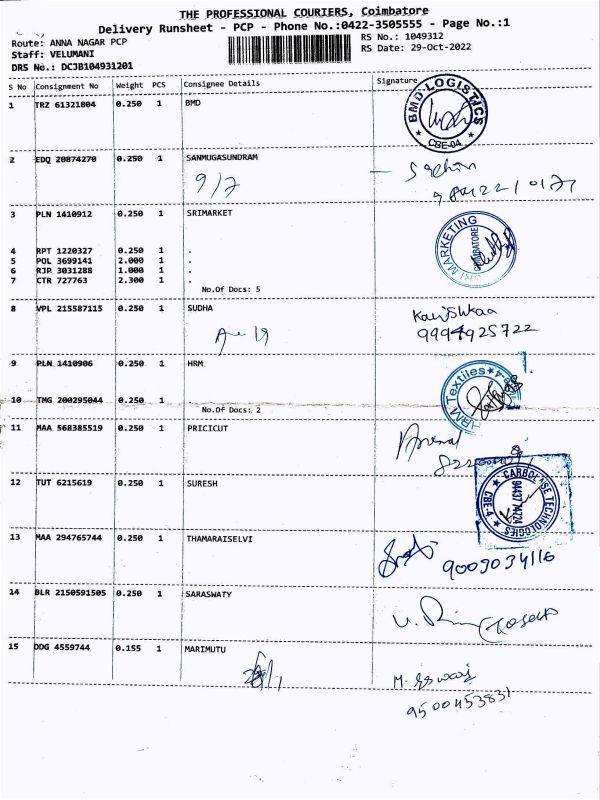 THE PROFESSIONAL COURIERS, Coimbatore
Delivery Runsheet - PCP - Phone No.:0422-3505555 - Page No.:1
Route: ANNA NAGAR PCP
RS No.: 1049312
Staff: VELUMANI
RS Date: 29-Oct-2022
DRS No.: DCJB104931201
S No Consignment No Weight PCS Consignee Details Signature
1 TRZ 61321804 0.250 1 BMD
BMD LOGISTICS
CBE-04
2 EDQ 20874270 0.250 1 SANMUGASUNDRAM
9/7
3 PLN 1410912 0.250 1 SRIMARKET
SRI MARKETING
COIMBATORE
4 RPT 1220327 0.250 1 .
5 PQL 3699141 2.000 1 .
6 RJP 3031288 1.000 1 .
7 CTR 727763 2.300 1 .
No.Of Docs: 5
8 VPL 215587115 0.250 1 SUDHA
Kavishkaa
9994925722
9 PLN 1410906 0.250 1 HRM
HRM Textiles
10 TMG 200295044 0.250 1 .
No.Of Docs: 2
11 MAA 568385519 0.250 1 PRICICUT
12 TUT 6215619 0.250 1 SURESH
TECHNOLOGIES
CBE-4
13 MAA 294765744 0.250 1 THAMARAISELVI
9003034116
14 BLR 2150591505 0.250 1 SARASWATY
15 DDG 4559744 0.155 1 MARIMUTU
9500453831